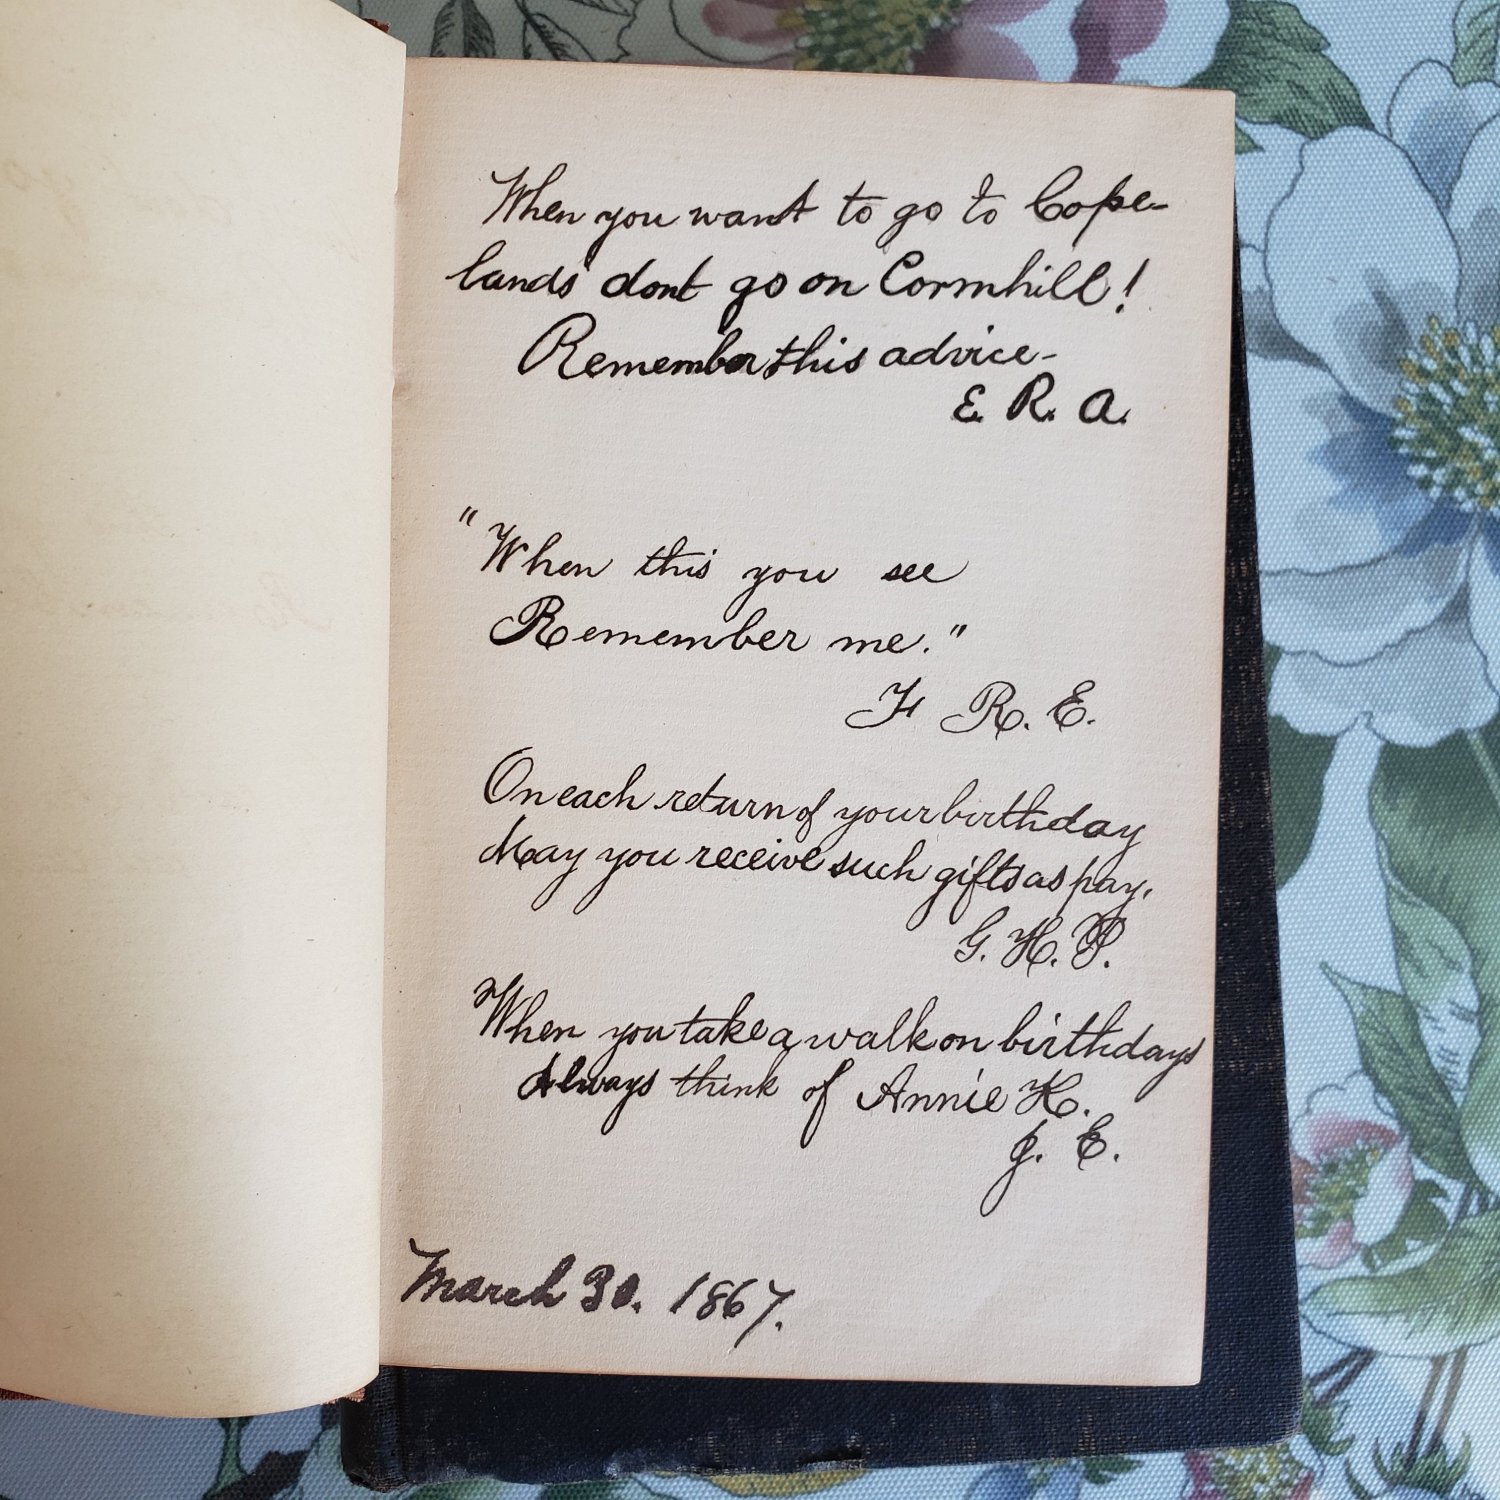 When you want to go to Cope-
lands dont go on Cornhill!
Remember this advice-
E. R. A.
"When this you see
Remember me."
F R. E.
On each return of your birthday
May you receive such gifts as pay.
G. H. P.
When you take a walk on birthdays
Always think of Annie H.
J. E.
March 30. 1867.